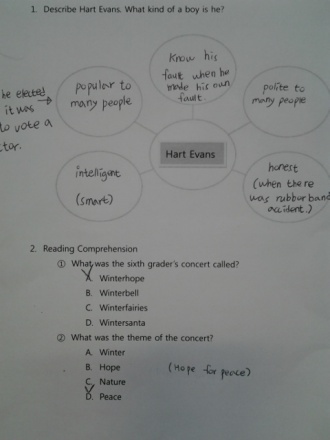 1. Describe Hart Evans. What kind of a boy is he?
know his
fault when he
made his own
fault.
popular to
many people
polite to
many people
he elected
it was
to vote a
ctor.
Hart Evans
intelligent
(smart)
honest
(when there
was rubbur band
accident.)
2. Reading Comprehension
① What was the sixth grader's concert called?
A. Winterhope
B. Winterbell
C. Winterfairies
D. Wintersanta
② What was the theme of the concert?
A. Winter
B. Hope
(Hope for peace)
C. Nature
D. Peace